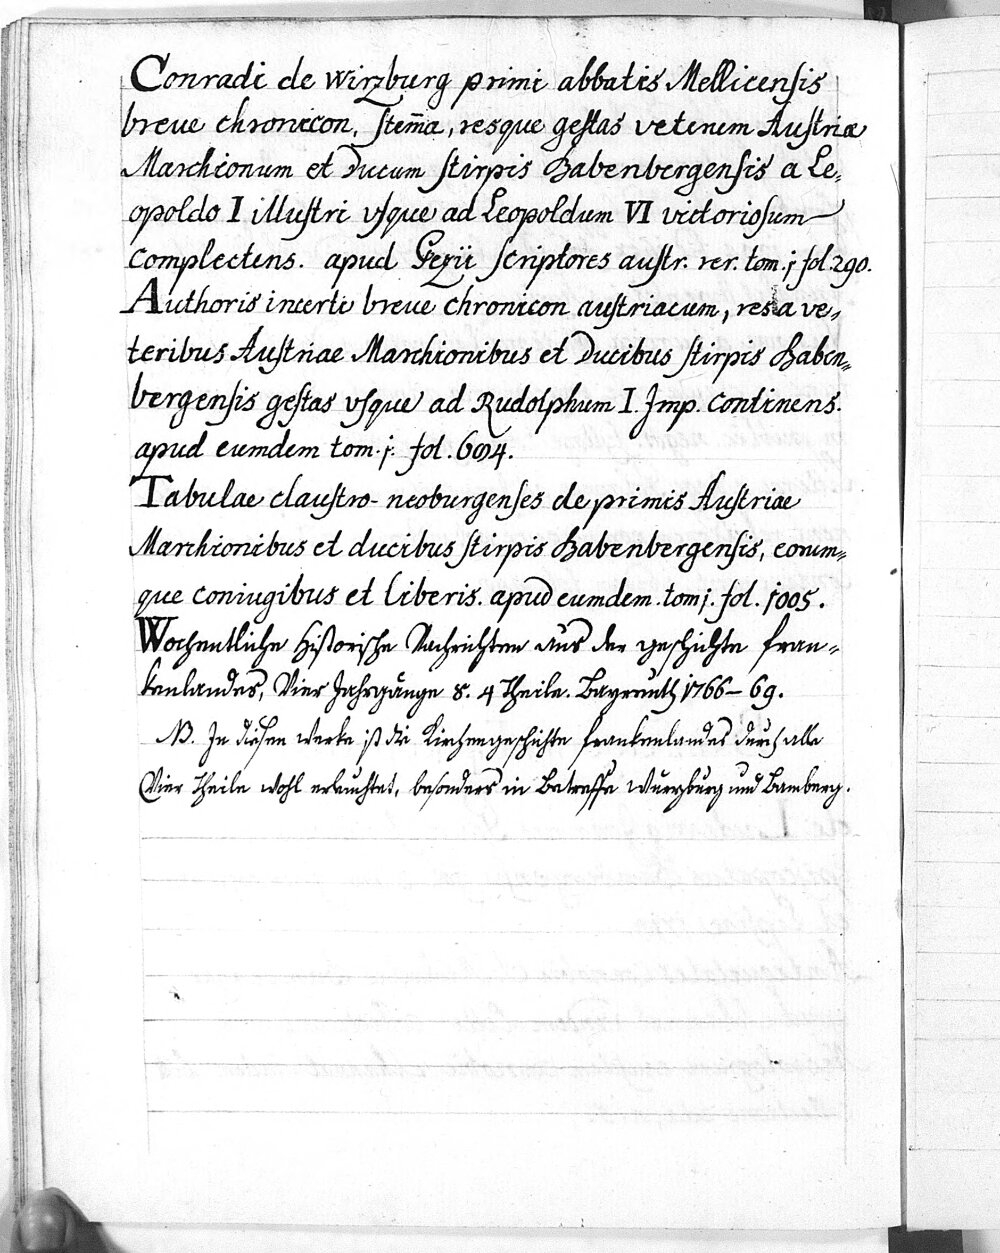 Conradi de Wirzburg primi abbatis Mellicensis
breue chronicon, stem̄a, resque gestas veterum Austriae
Marchionum et Ducum stirpis Babenbergensis a Le„
opoldo I illustri vsque ad Leopoldum VI victoriosum
complectens. apud Pezii scriptores austr. rer. tom. j fol. 290.
Authoris incerti breue chronicon austriacum, res a ve„
teribus Austriae Marchionibus et Ducibus stirpis Baben„
bergensis gestas vsque ad Rudolphum I. Imp. continens.
apud eumdem tom. j. fol. 684.
Tabulae claustro-neoburgenses de primis Austriae
Marchionibus et ducibus stirpis Babenbergensis, eorum„
que coniugibus et liberis. apud eumdem. tom j. fol. j005.
Wochentliche Historische Nachrichten aus der geschichte fran„
kenlandes, Vier Jahrgänge 8. 4 Theile. Bayreuth 1766–69.
NB. In diesen werke ist die Kirchengeschichte frankenlandes durch alle
Vier Theile wohl erleuchtet, besonders in Betreffe Würzburg und Bamberg.